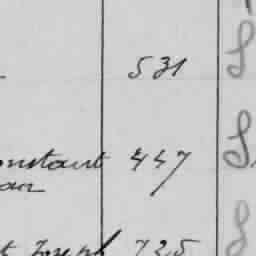 531 S
onstant 447 S.
an
t Joseph 725 S